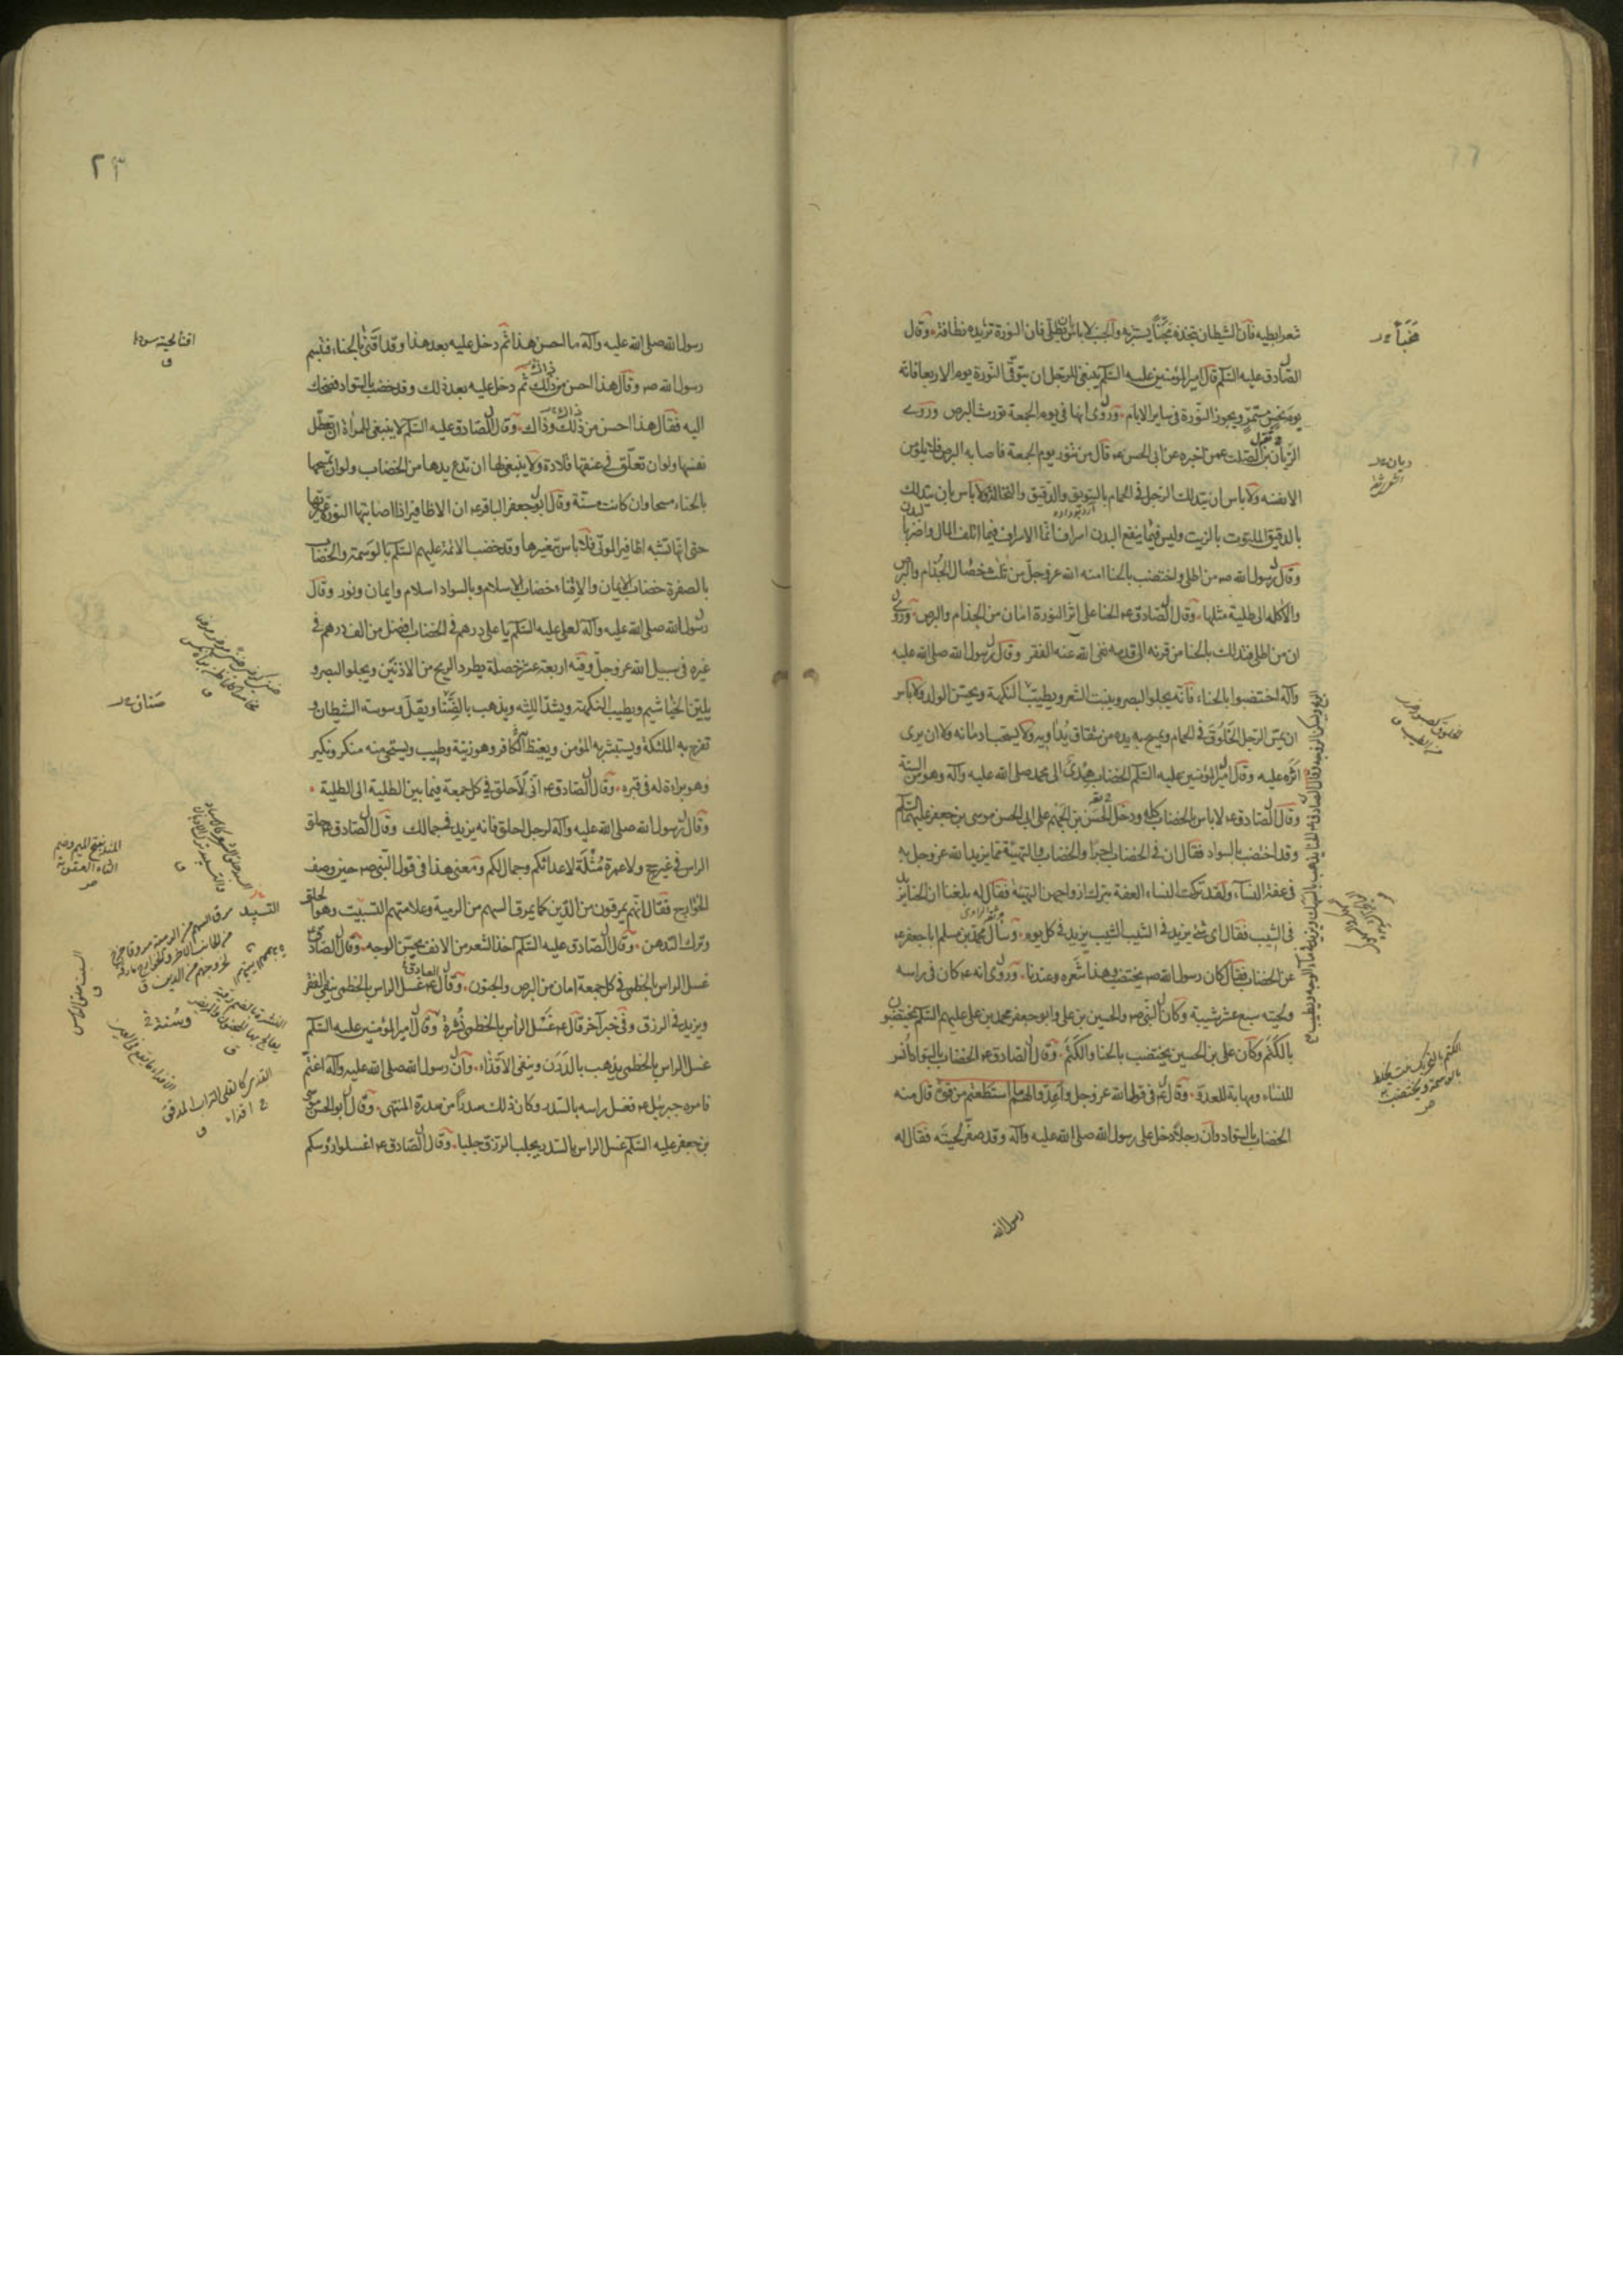 شعر ابطيه فان الشيطان يتخذه مجنّا يستتر به والجنب لا باس ان يطلى فان النورة تزيده نظافة وقال
الصادق عليه السلم قال امير المؤمنين عليه السلم ينبغى للرجل ان يتوقى النورة يوم الاربعا فانه
يوم نحس مستمر ويجوز النورة فى ساير الايام وروى انها فى يوم الجمعة تورث البرص وروى
الريان بن الصلت عمن اخبره عن ابى الحسن ع قال من تنور يوم الجمعة فاصابه البرص فلا يلومن
الا نفسه ولا باس ان يتدلك الرجل فى الحمام بالسويق والدقيق والنخالة ولا باس بان يتدلك
بالدقيق الملتوت بالزيت وليس فيما ينفع البدن اسراف انما الاسراف فيما اتلف المال واضر بالبدن
وقال رسول الله ص من اطلى واختضب بالحنا امنه الله عز وجل من ثلث خصال الجذام والبرص
والاكله الى طلية مثلها وقال الصادق ع الحنا على اثر النورة امان من الجذام والبرص وروى
ان من اطلى فتدلك بالحنا من قرنه الى قدمه نفى الله عنه الفقر وقال رسول الله صلى الله عليه
وآله اختضبوا بالحناء فانه يجلو البصر وينبت الشعر ويطيب النكهة ويحسن الولد ولا باس
ان يمس الرجل الخلوق فى الحمام ويمسح به يده من شقاق يداويه ولا يستحب ادمانه ولا ان يرى
اثره عليه وقال امير المؤمنين عليه السلم الخضاب هدى الى محمد صلى الله عليه وآله وهو من السنة
وقال الصادق ع لا باس بالخضاب كله ودخل الحسن بن الجهم على ابى الحسن موسى بن جعفر عليهما السلم
وقد اختضب بالسواد فقال ان فى الخضاب اجرا والخضاب والتهيئة مما يزيد الله عز وجل به
فى عفة النساء ولقد تركت النساء العفة بترك ازواجهن التهيئة فقال له بلغنا ان الحنا يزيد
فى الشيب فقال اى شئ يزيد فى الشيب الشيب يزيد فى كل يوم وسأل محمد بن مسلم ابا جعفر ع
عن الخضاب فقال كان رسول الله ص يختضب وهذا شعره وعندنا وروى انه ع كان فى راسه
ولحيته سبع عشر شيبة وكان النبى ص والحسين بن على وابو جعفر محمد بن على عليهم السلم يختضبون
بالكتم وكان على بن الحسين يختضب بالحنا والكتم وقال الصادق ع الخضاب بالسواد انس
للنساء ومهابة للعدو وقال ع فى قول الله عز وجل واعدوا لهم ما استطعتم من قوة قال منه
الخضاب بالسواد وان رجلا دخل على رسول الله صلى الله عليه وآله وقد صفر لحيته فقال له
رسول الله
٢٣
رسول الله صلى الله عليه وآله ما احسن هذا ثم دخل عليه بعد هذا وقد اقنى بالحناء فتبسم
رسول الله ص وقال هذا احسن من ذلك ثم دخل عليه بعد ذلك وقد خضب بالسواد فضحك
اليه فقال هذا احسن من ذلك وذاك وقال الصادق عليه السلم لا ينبغى للمراة ان تعطل
نفسها ولو ان تعلق فى عنقها قلادة ولا ينبغى لها ان تدع يدها من الخضاب ولو ان تمسحها
بالحناء مسحا وان كانت مسنة وقال ابو جعفر الباقر ع ان الاظافير اذا اصابتها النورة غيرتها
حتى انها تشبه اظافير الموتى فلا باس بتغييرها وقد خضب الائمة عليهم السلم بالوسمة والخضاب
بالصفرة خضاب الايمان والاقناء خضاب الاسلام وبالسواد اسلام وايمان ونور وقال
رسول الله صلى الله عليه وآله لعلى عليه السلم يا على درهم فى الخضاب افضل من الف درهم فى
غيره فى سبيل الله عز وجل وفيه اربعة عشر خصلة يطرد الريح من الاذنين ويجلو البصر و
يلين الخياشيم ويطيب النكهة ويشد اللثه ويذهب بالضنا ويقل وسوسة الشيطان و
تفرح به الملئكة ويستبشر به المؤمن ويغيظ به الكافر وهو زينة وطيب ويستحى منه منكر ونكير
وهو براءة له فى قبره وقال الصادق ع انى لاحلق فى كل جمعة فيما بين الطلية الى الطلية
وقال رسول الله صلى الله عليه وآله لرجل احلق فانه يزيد فى جمالك وقال الصادق ع حلق
الراس فى غير حج ولا عمرة مثلة لاعدائكم وجمال لكم ومعنى هذا فى قول النبى ص حين وصف
الخوارج فقال انهم يمرقون من الدين كما يمرق السهم من الرمية وعلامتهم التسبيت وهو الحلق
وترك التدهن وقال الصادق عليه السلم اخذ الشعر من الانف يحسن الوجه وقال الصادق ع
غسل الراس بالخطمى فى كل جمعة امان من البرص والجنون وقال الصادق ع غسل الراس بالخطمى ينفى الفقر
ويزيد فى الرزق وفى خبر آخر قال ع غسل الرأس بالخطمى نشرة وقال امير المؤمنين عليه السلم
غسل الراس بالخطمى يذهب بالدرن وينفى الاقذاء وان رسول الله صلى الله عليه وآله اغتم
فامره جبرئيل ع فغسل راسه بالسدر وكان ذلك سدرا من سدرة المنتهى وقال ابو الحسن موسى
بن جعفر عليه السلم غسل الراس بالسدر يجلب الرزق جلبا وقال الصادق ع اغسلوا رؤسكم